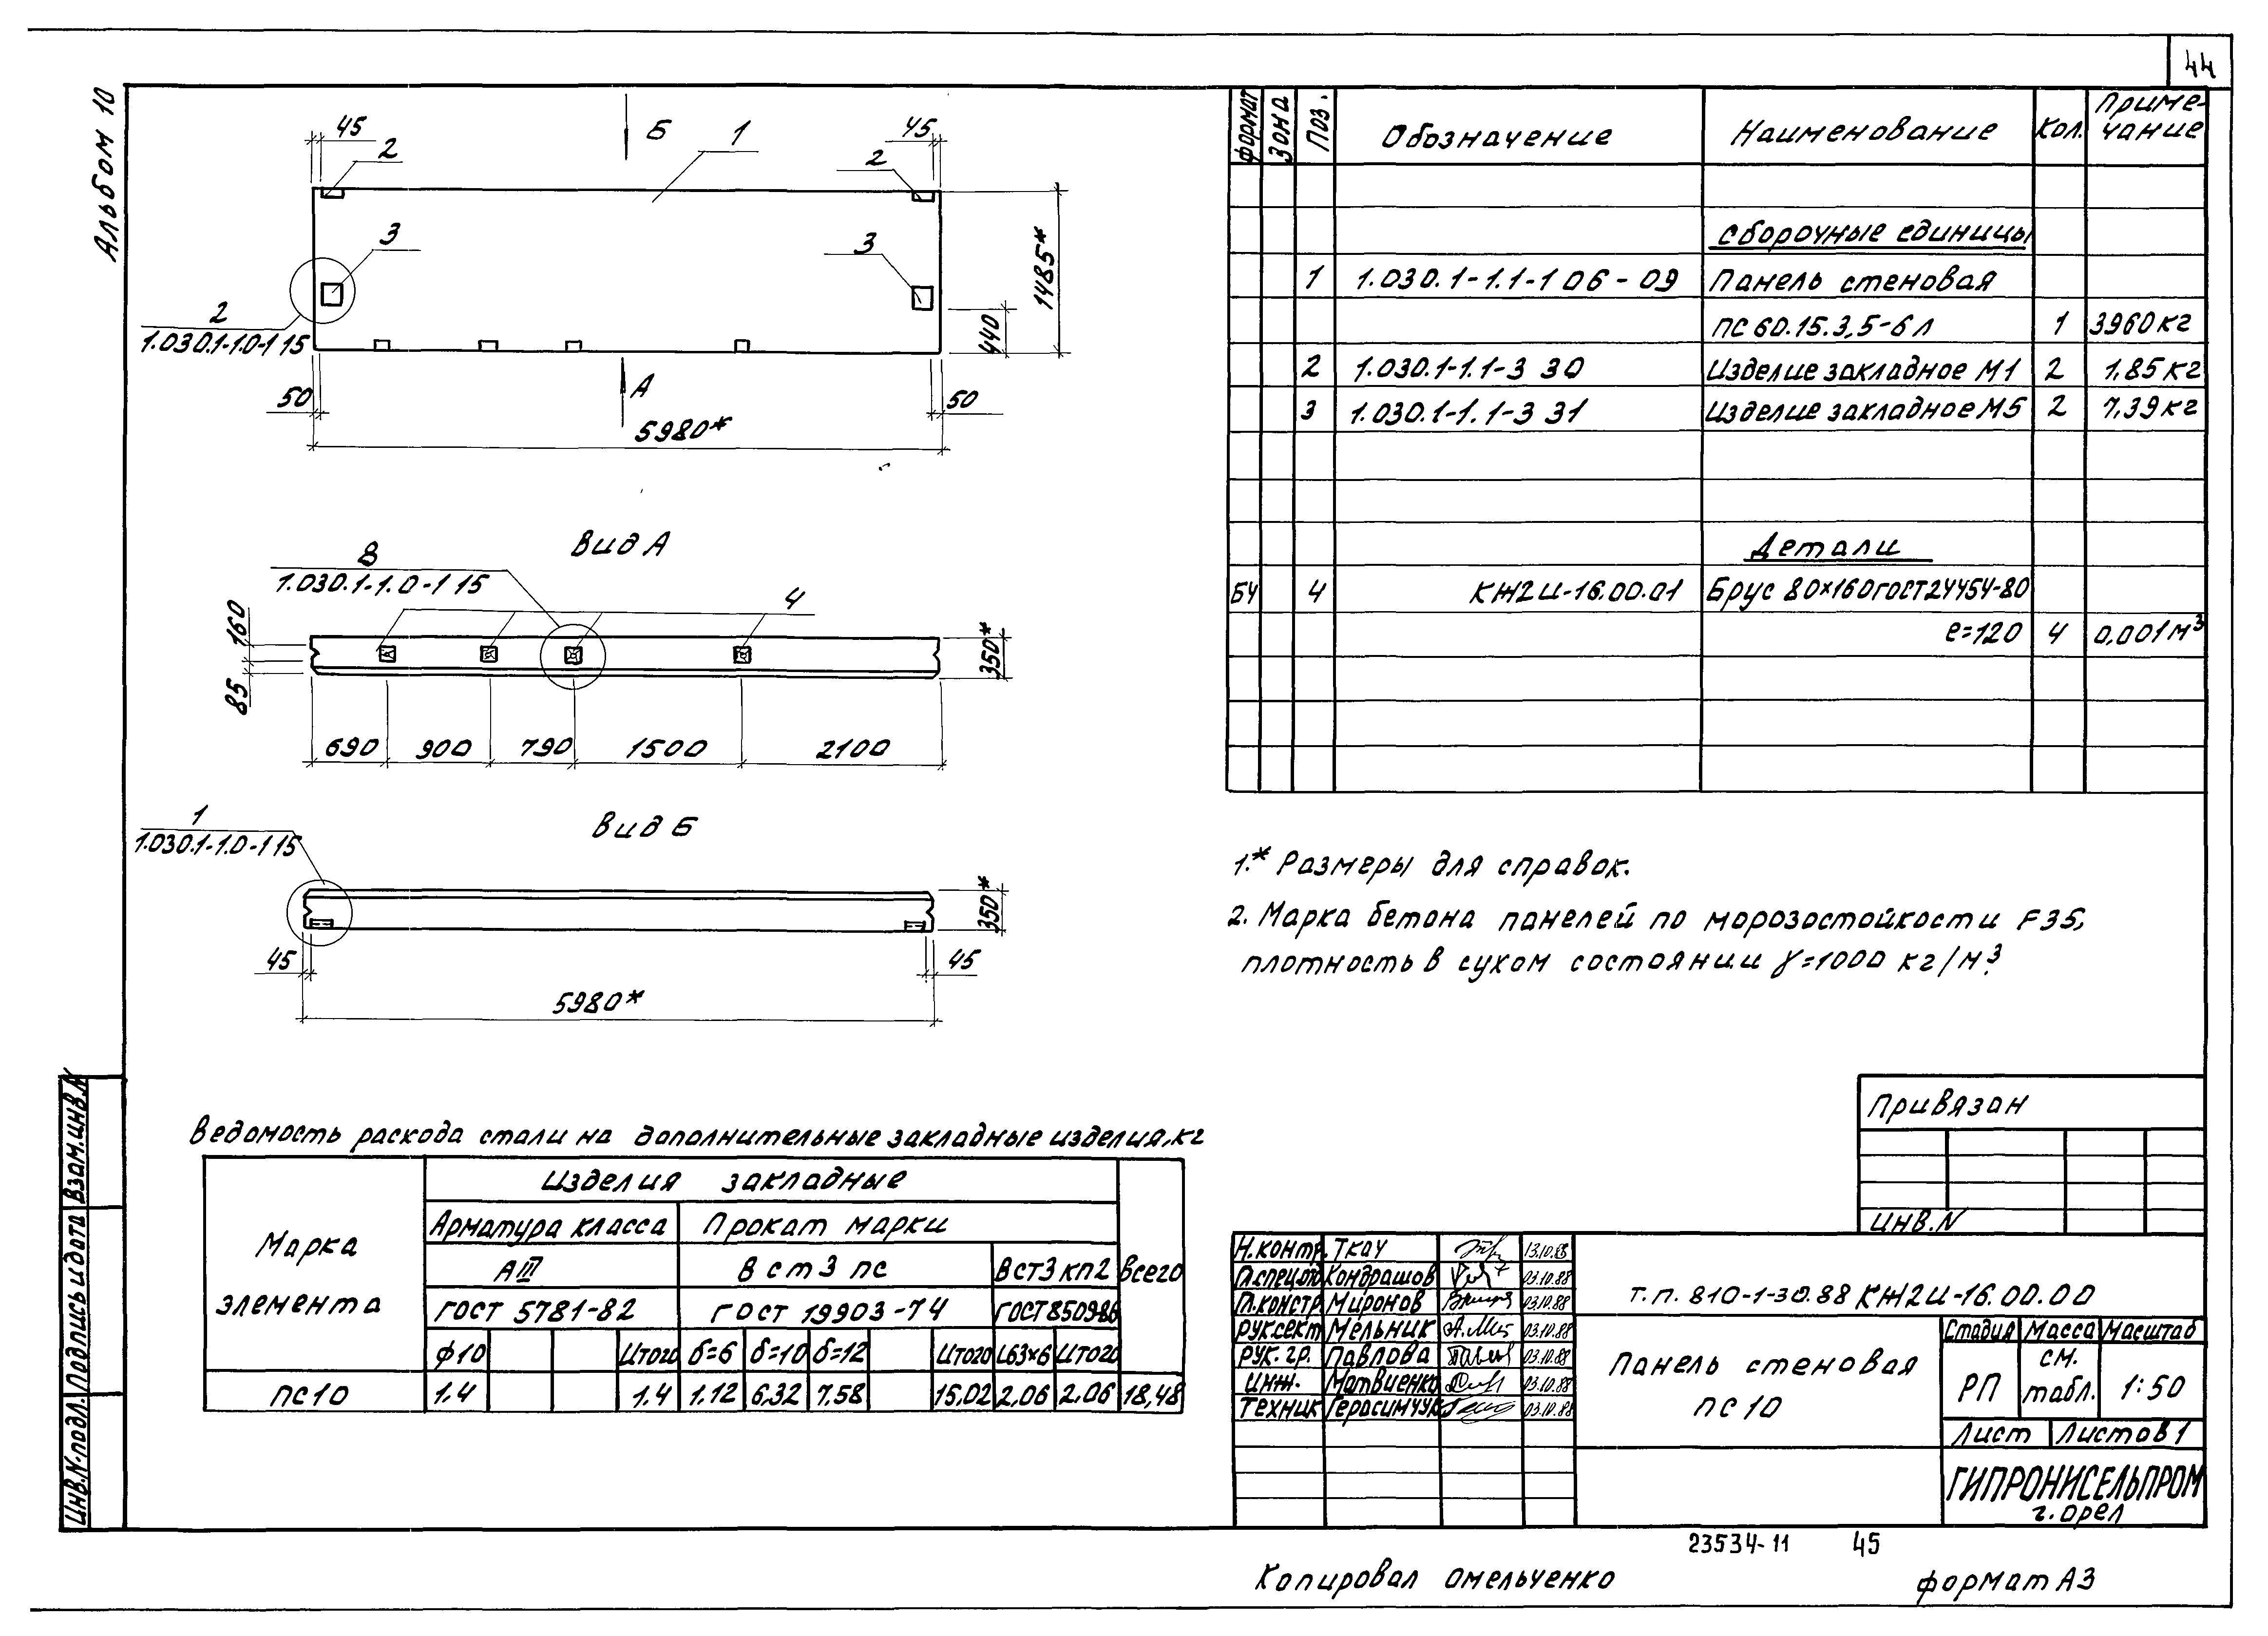 44
Альбом 10
45
2
Б
1
45
2
3
3
1485*
440
2
1.030.1-1.0-1 15
50
А
50
5980*
Вид А
8
1.030.1-1.0-1 15
4
160
85
350*
690 900 790 1500 2100
Вид Б
1
1.030.1-1.0-1 15
350*
45
45
5980*
Формат Зона Поз. Обозначение Наименование Кол. Приме-
чание
Сборочные единицы
1 1.030.1-1.1-1 06-09 Панель стеновая
ПС 60.15.3,5-6л 1 3960 кг
2 1.030.1-1.1-3 30 Изделие закладное М1 2 1,85 кг
3 1.030.1-1.1-3 31 Изделие закладное М5 2 7,39 кг
Детали
БЧ 4 КЖ2И-16.00.01 Брус 80×160 ГОСТ 24454-80
ℓ=120 4 0,001 м³
1.* Размеры для справок.
2. Марка бетона панелей по морозостойкости F35,
плотность в сухом состоянии γ=1000 кг/м³.
Ведомость расхода стали на дополнительные закладные изделия, кг
Марка
элемента
Изделия закладные
Всего
Арматура класса Прокат марки
АIII В ст3 пс В ст3 кп2
ГОСТ 5781-82 ГОСТ 19903-74 ГОСТ 8509-86
ф10 Итого δ=6 δ=10 δ=12 Итого L63×6 Итого
ПС10 1.4 1.4 1.12 6,32 7,58 15,02 2,06 2.06 18,48
Привязан
Инв.N
Н.контр. Ткач 13.10.88
Гл.спец.от Кондрашов 03.10.88
Гл.констр. Миронов 03.10.88
Рук.сект. Мельник 03.10.88
Рук. гр. Павлова 03.10.88
Инж. Матвиенко 03.10.88
Техник Герасимчук 03.10.88
Т.п. 810-1-30.88 КЖ2И-16.00.00
Панель стеновая
ПС10
Стадия Масса Масштаб
РП см.
табл. 1:50
Лист Листов 1
ГИПРОНИСЕЛЬПРОМ
г. Орел
Инв.N подл. Подпись и дата Взам.инв.N
23534-11 45
Копировал Омельченко Формат А3